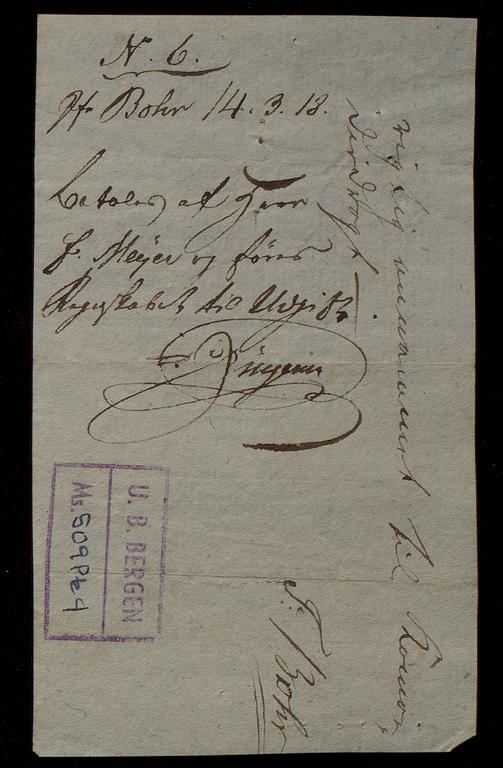 N. 6.
Hr Bohr 14. 3. 18.
betales af Herr
F. Meyer og føres
Regnskabet til Udgift.
rigtig annammet til
F. Bohr
U. B. BERGEN
Ms. 509 Pk 9